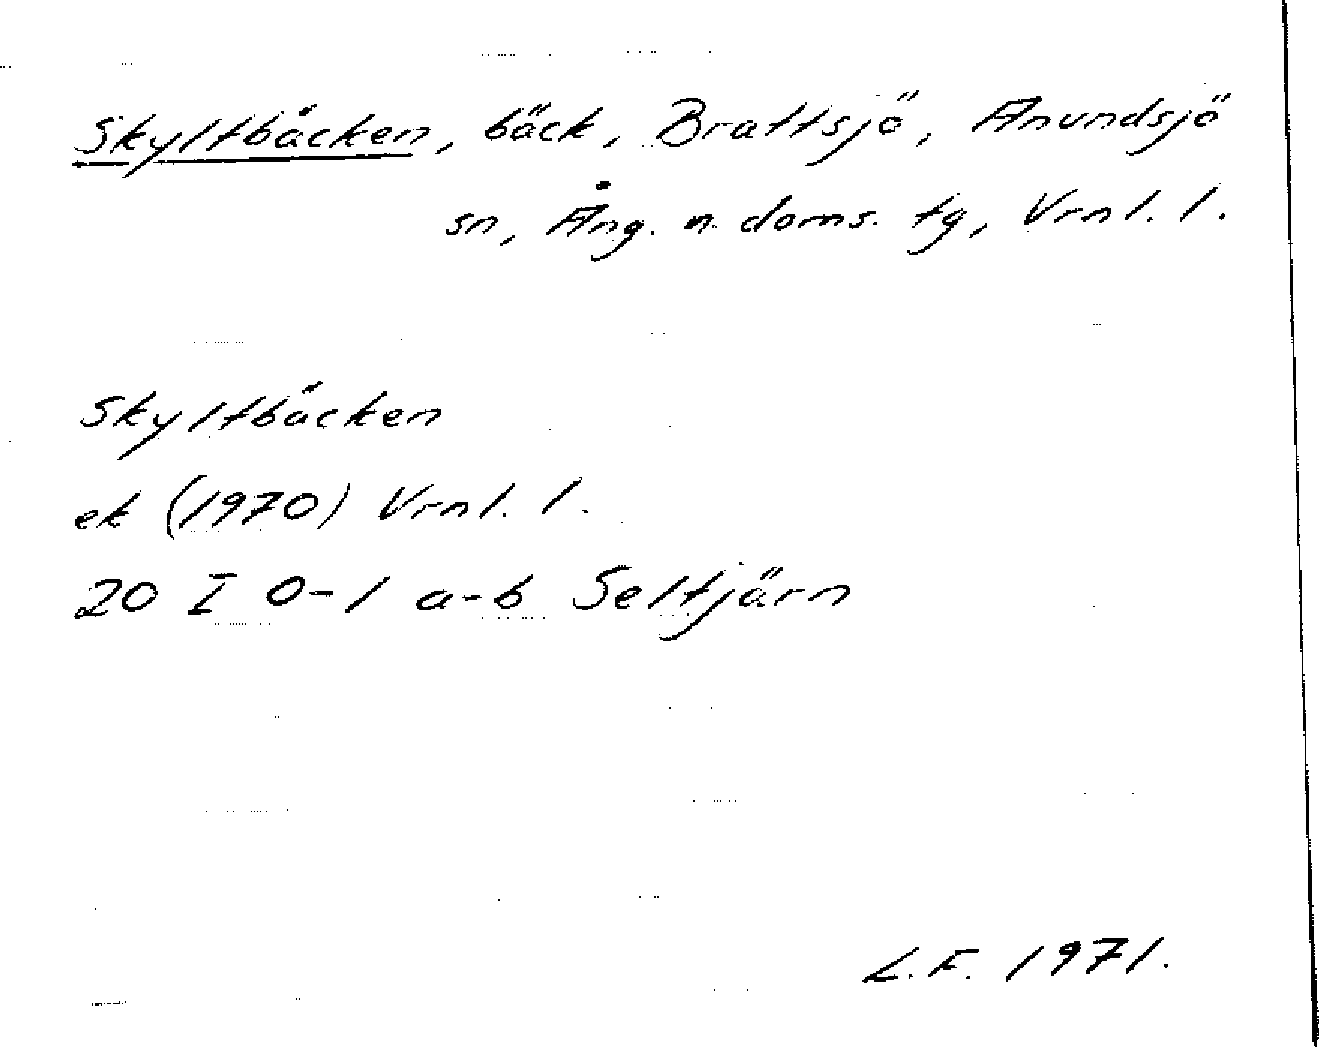 Skyltbäcken, bäck, Brattsjö, Anundsjö
sn, Ång. n. doms. tg, Vrnl. l.
Skyltbäcken
ek (1970) Vrnl. l.
20 I 0-1 a-b Seltjärn
L.F. 1971.